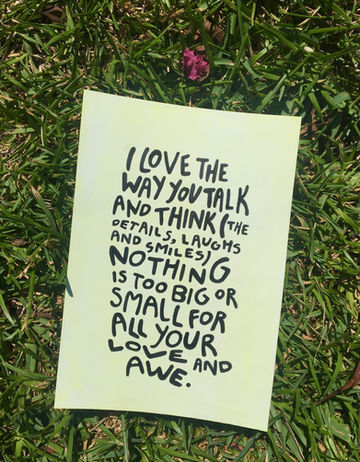 I LOVE THE
WAY YOU TALK
AND THINK (THE
DETAILS, LAUGHS
AND SMILES)
NOTHING
IS TOO BIG OR
SMALL FOR
ALL YOUR
LOVE AND
AWE.